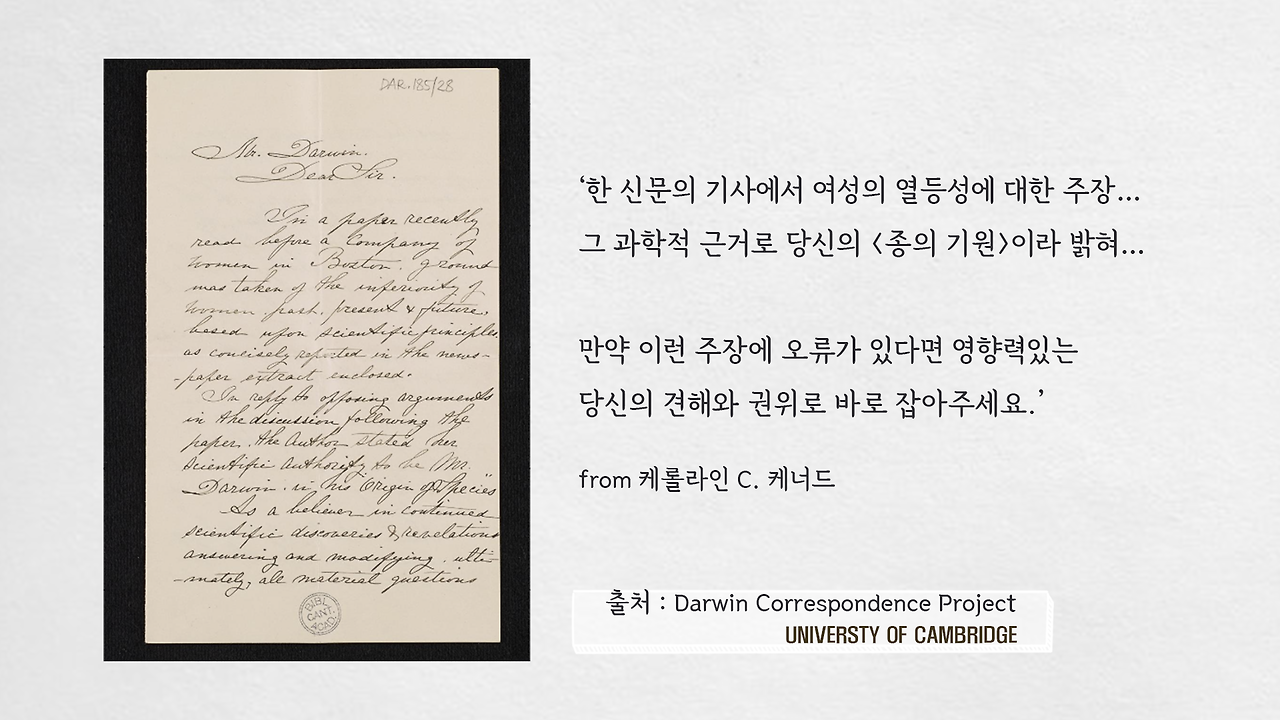 DAR.185/28
Mr. Darwin.
Dear Sir.
In a paper recently
read before a Company of
women in Boston, ground
was taken of the inferiority of
women past, present & future,
based upon scientific principles,
as concisely reported in the news-
-paper extract enclosed.
In reply to opposing arguments
in the discussion following the
paper, the Author stated her
scientific Authority to be Mr.
Darwin, in his Origin of Species
As a believer in continued
scientific discoveries & revelations
answering and modifying, ulti-
-mately, all material questions
BIBL.
CANT.
ACAD.
‘한 신문의 기사에서 여성의 열등성에 대한 주장...
그 과학적 근거로 당신의 <종의 기원>이라 밝혀...
만약 이런 주장에 오류가 있다면 영향력있는
당신의 견해와 권위로 바로 잡아주세요.’
from 케롤라인 C. 케너드
출처 : Darwin Correspondence Project
UNIVERSTY OF CAMBRIDGE